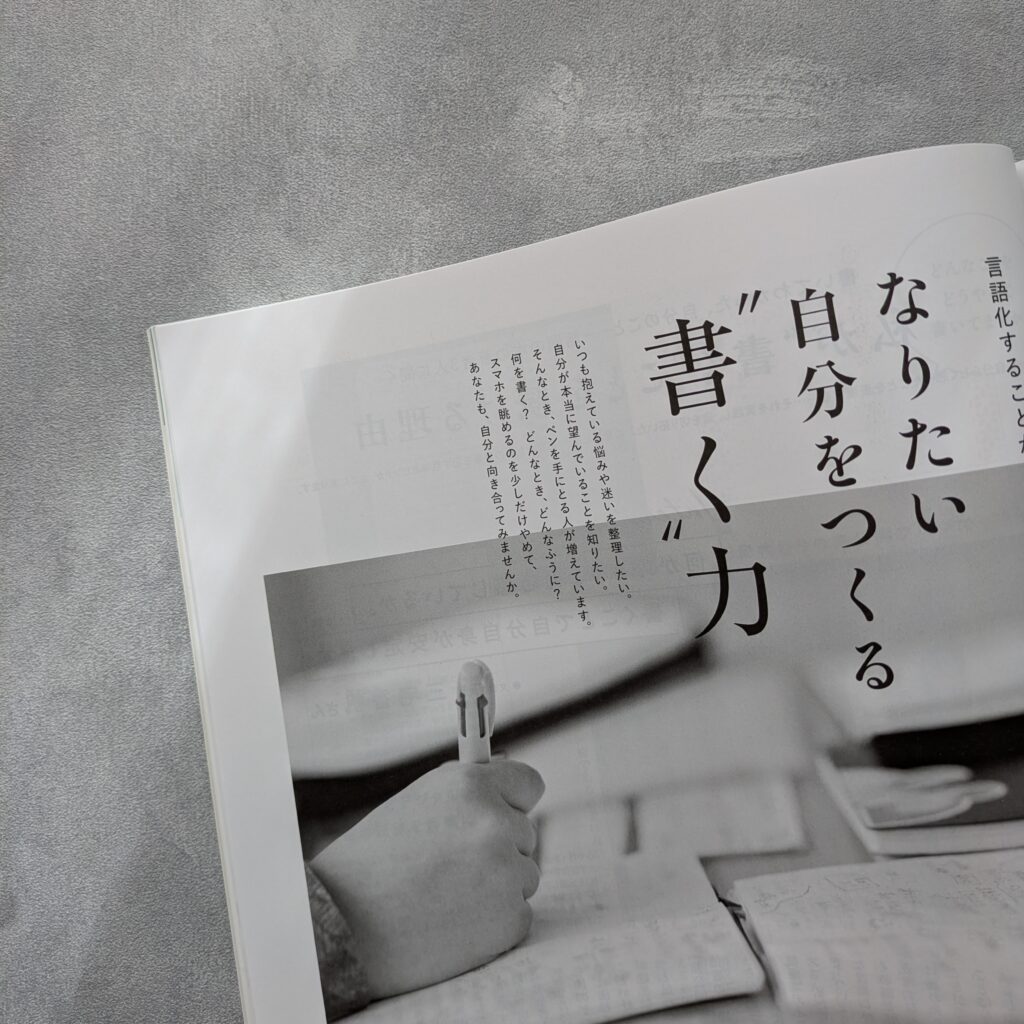 言語化すること
なりたい
自分をつくる
〝書く〟力
いつも抱えている悩みや迷いを整理したい。
自分が本当に望んでいることを知りたい。
そんなとき、ペンを手にとる人が増えています。
何を書く？　どんなとき、どんなふうに？
スマホを眺めるのを少しだけやめて、
あなたも、自分と向き合ってみませんか。